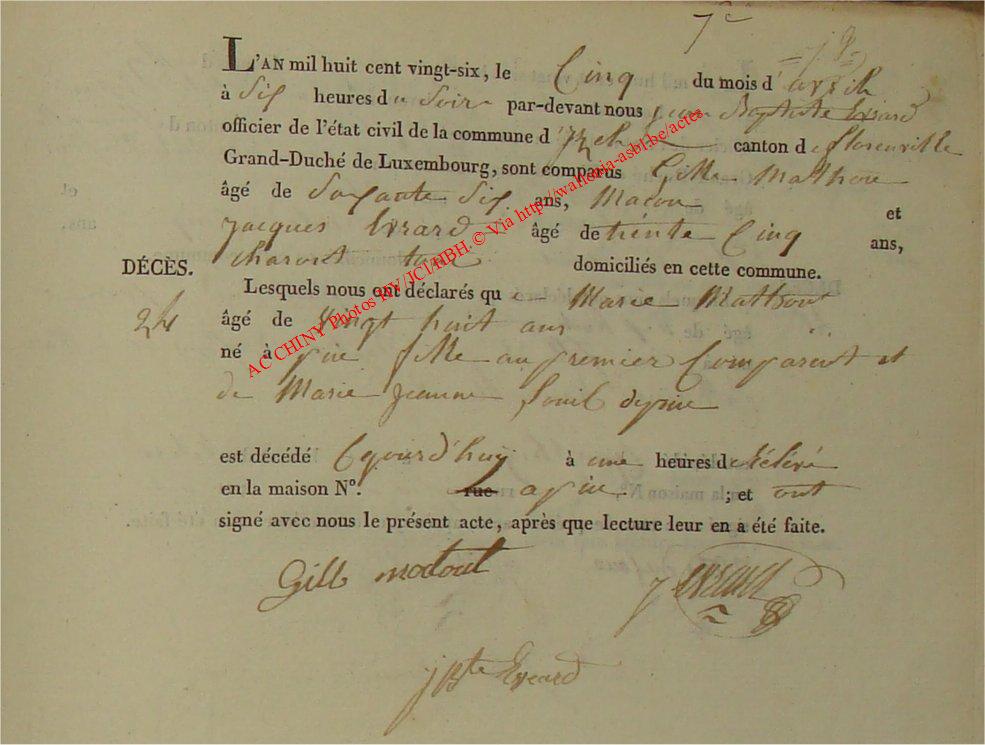 7
L'AN mil huit cent vingt-six, le Cinq du mois d'avril
à Six heures du Soir par-devant nous jean Baptiste Evrard
officier de l'état civil de la commune d'Izel canton de florenville
Grand-Duché de Luxembourg, sont comparus Gille Mathou
âgé de Soixante Six ans, Macon et
jacques Evrard âgé de trente Cinq ans,
domiciliés en cette commune.
DÉCÈS.
24
Lesquels nous ont déclarés que Marie Mathout
âgé de vingt huit ans
né à pin fille au premier Comparent et
de Marie jeanne
est décédé à une heures de
en la maison N°. rue a pin ; et ont
signé avec nous le présent acte, après que lecture leur en a été faite.
Gill matout
J evrard
j Bte Evrard
AC CHINY Photos RV/JC1/HBH. © Via http://wallonia-asbl.be/actes.